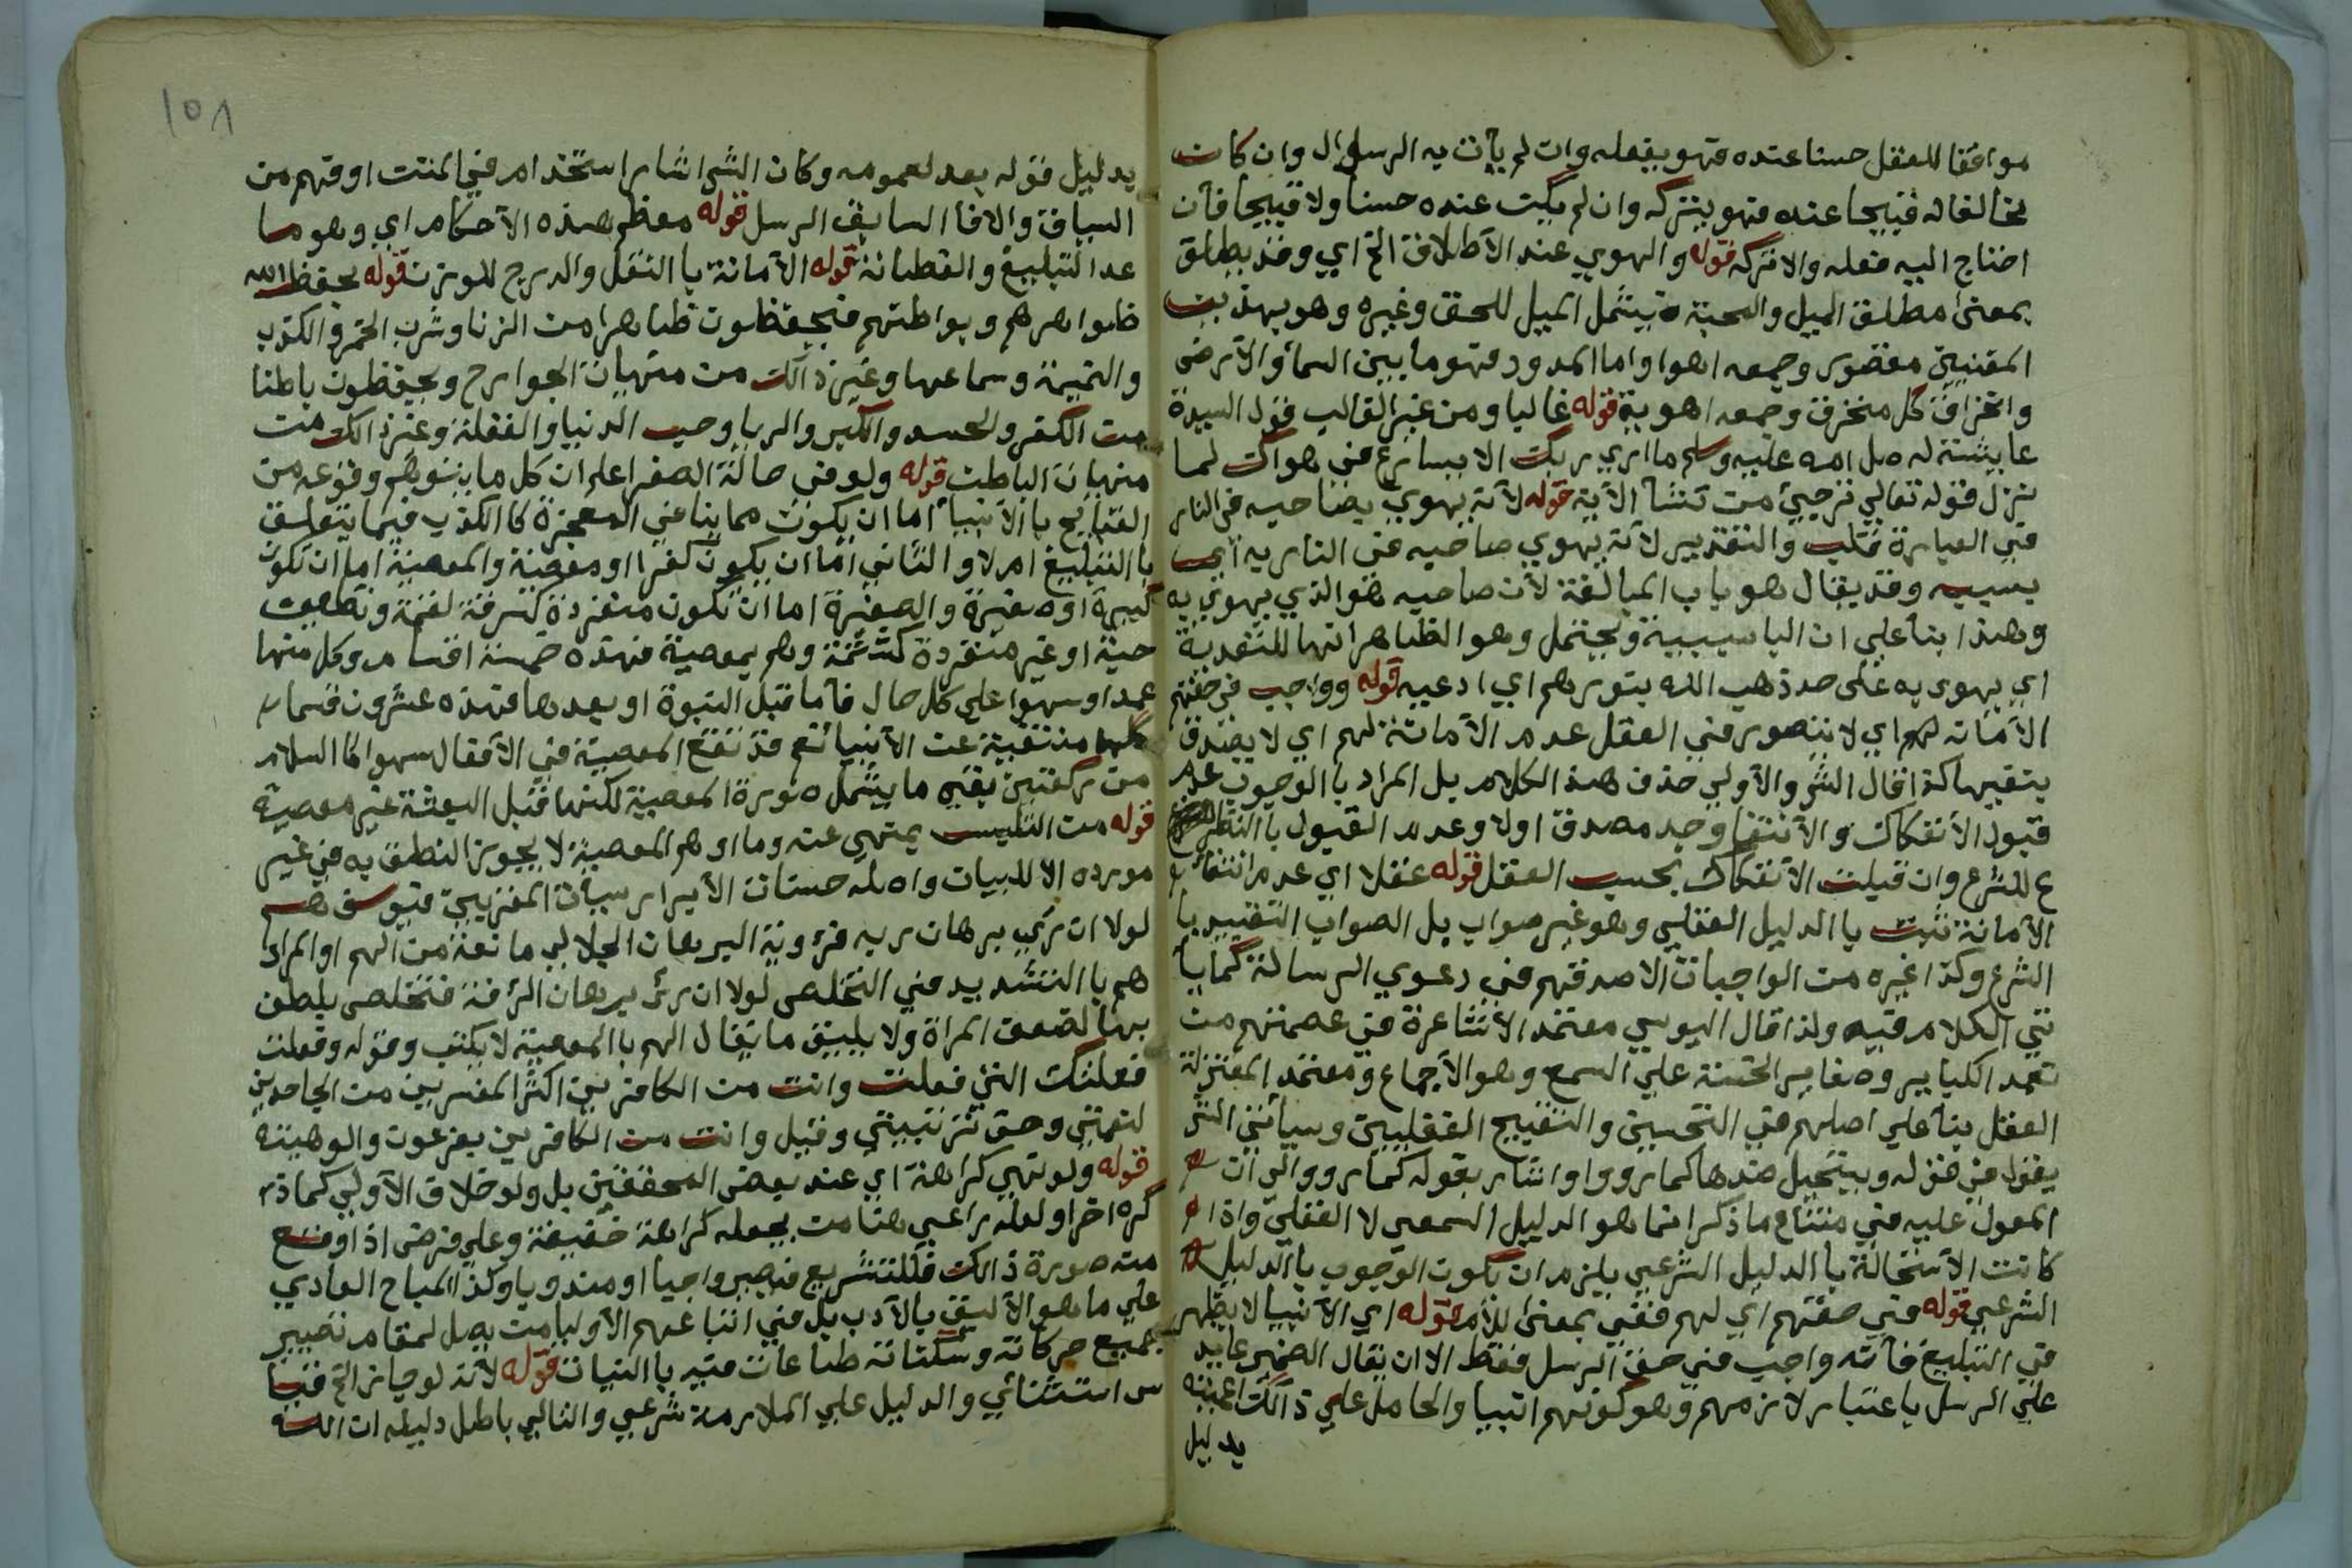 موافقا للعقل حسنا عنده فهو يفعله وان لم يأت به الرسل وان كان
مخالفا له قبيحا عنده فهو يتركه وان لم يكن عنده حسنا ولا قبيحا فان
احتاج اليه فعله والا تركه قوله والهوي عند الاطلاق الخ اي وقد يطلق
بمعني مطلق الميل والمحبة فيشمل الميل للحق وغيره وهو بهذين
المعنيين مقصور وجمعه اهوا واما الممدود فهو ما بين السما والارض
وانخراق كل منخرق وجمعه اهوية قوله غالبا ومن غير الغالب قول السيدة
عايشة له صلى الله عليه وسلم ما اري ربك الا يسارع في هواك لما
نزل قوله تعالي ترجيئ من تشأ الآية قوله لانه يهوي بصاحبه في النار
في العبارة قلب والتقدير لانه يهوي صاحبه في النار به اي
بسببه وقد يقال هو باب المبالغة لان صاحبه هو الذي يهوي به
وهذا بنا علي ان البا سببية ويحتمل وهو الظاهر انها للتعدية
اي يهوي به علي حد ذهب الله بنورهم اي اذهبه قوله وواجب في حقهم
الامانه لهم اي لا يتصور في العقل عدم الامانة لهم اي لا يصدق
بنقيها كذا قال الش والاولي حذف هذا الكلام بل المراد بالوجوب عدم
قبول الانفكاك والانتفا وجد مصدق اولا وعدم القبول بالنظر
ع للشرع وان قبلت الانفكاك بحسب العقل قوله عقلا اي عدم انتفا
الامانة ثبت با الدليل العقلي وهو غير صواب بل الصواب التقييد با
الشرع وكذا غيره من الواجبات الا صدقهم في دعوي الرسالة كما يا
تي الكلام فيه ولذا قال اليوسي معتمد الاشاعرة في عصمتهم من
تعمد الكباير وصغاير الخسة علي السمع وهو الاجماع ومعتمد المعتزلة
العقل بنا علي اصلهم في التحسين والتقبيح العقليين وسيأتي الش
يقول في قوله ويستحيل ضدها كما رووا واشار بقوله كما رووا الي ان
المعول عليه في منتاع ما ذكر انما هو الدليل السمعي لا العقلي واذا
كانت الاستحالة با الدليل الشرعي يلزم ان يكون الوجوب با الدليل
الشرعي قوله في حقهم اي لهم ففي بمعني اللام قوله اي الانبيا لا يظهر
في التبليغ فانه واجب في حق الرسل فقط الا ان يقال الضمير عايد
علي الرسل باعتبار لازمهم وهو كونهم انبيا والحامل علي ذالك
بدليل
١٥٨
بدليل قوله بعد لعمومه وكان الش اشار استخدام في المتن او فهم من
السياق والافا السابق الرسل قوله معظم هذه الاحكام اي وهو ما
عدا التبليغ والفطانة قوله الامانة با النقل والدرج للوزن قوله بحفظ الله
ظواهرهم وبواطنهم فيحفظون ظاهرا من الزنا وشرب الخمر والكذب
والنميمة وسماعها وغير ذالك من منهيات الجوارح ويحفظون باطنا
من الكفر والحسد والكبر والريا وحب الدنيا والغفلة وغير ذالك من
منهيات الباطن قوله ولو في حالة الصغر اعلم ان كل ما يتوهم وقوعه من
القبايح با الانبيا اما ان يكون مما ينافي المعجزة كا الكذب فيما يتعلق
با التبليغ ام لا والثاني اما ان يكون كفرا او معصية والمعصية اما ان تكون
كبيرة او صغيرة والصغيرة اما ان تكون منفردة كسرقة لقمة وتطفيف
حبة او غير منفردة كشتمة وهم بمعصية فهذه خمسة اقسام وكل منها
عمدا او سهوا علي كل حال فاما قبل النبوة او بعدها فهذه عشرون قسما
كلها منتفية عن الانبيا نعم قد تقع المعصية في الافعال سهوا كا السلام
من ركعتين بقي ما يشمل صورة المعصية لكنها قبل البعثة غير معصية
قوله من التلبس بمنهي عنه وما اوهم المعصية لا يجوز النطق به في غير
مورده الا للبيان واصله حسنات الابرار سيأت المقربين فيوسف هم
لولا ان رءي برهان ربه فرؤية البرهان الجلالي مانعة من الهم او المراد
هم با التشديد في التخلص لولا ان رءي برهان الرأفة فتخلص بلطف
بها لضعف المرأة ولا يليق ما يقال الهم با المعصية لا يكتب وقوله وفعلت
فعلتك التي فعلت وانت من الكافرين اكثر المفسرين من الجاحدين
لنعمتي وحق تربيتي وقيل وانت من الكافرين بفرعون والوهيته
قوله ولو نهي كراهة اي عند بعض المحققين بل ولو خلاف الاولي كما ذ
كره اخرا ولعله راعي هنا من يجعله كراهة خفيفة وعلي فرض اذا وقع
منه صورة ذالك فللتشريع فيصير واجبا او مندوبا وكذا المباح العادي
علي ما هو الاليق بالادب بل في اتباعهم الاوليا من يصل لمقام تصير
جميع حركاته وسكناته طاعات فيه با النيات قوله لانه لو جاز الخ قيا
س استثنائي والدليل علي الملازمة شرعي والتالي باطل دليله ان الله